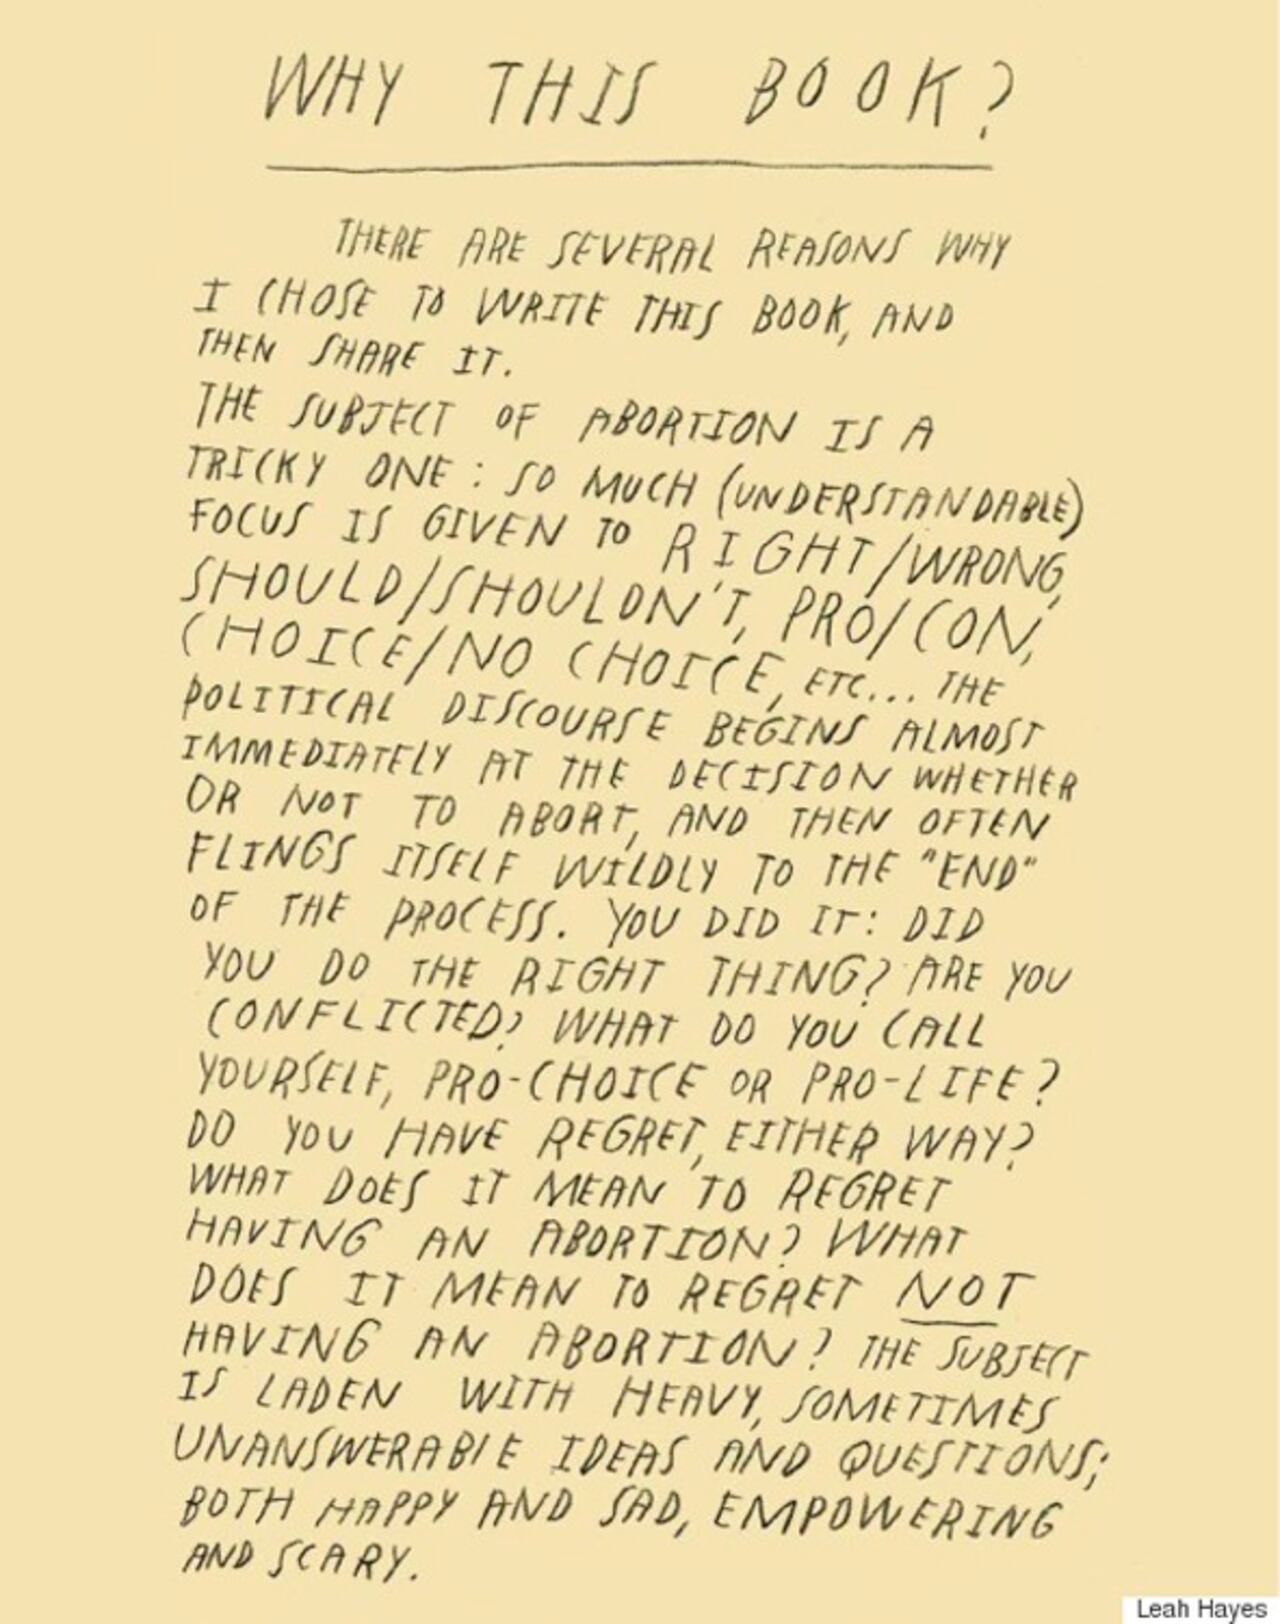 WHY THIS BOOK?
THERE ARE SEVERAL REASONS WHY
I CHOSE TO WRITE THIS BOOK, AND
THEN SHARE IT.
THE SUBJECT OF ABORTION IS A
TRICKY ONE: SO MUCH (UNDERSTANDABLE)
FOCUS IS GIVEN TO RIGHT/WRONG,
SHOULD/SHOULDN'T, PRO/CON,
CHOICE/NO CHOICE, ETC... THE
POLITICAL DISCOURSE BEGINS ALMOST
IMMEDIATELY AT THE DECISION WHETHER
OR NOT TO ABORT, AND THEN OFTEN
FLINGS ITSELF WILDLY TO THE "END"
OF THE PROCESS. YOU DID IT: DID
YOU DO THE RIGHT THING? ARE YOU
CONFLICTED? WHAT DO YOU CALL
YOURSELF, PRO-CHOICE OR PRO-LIFE?
DO YOU HAVE REGRET, EITHER WAY?
WHAT DOES IT MEAN TO REGRET
HAVING AN ABORTION? WHAT
DOES IT MEAN TO REGRET NOT
HAVING AN ABORTION? THE SUBJECT
IS LADEN WITH HEAVY, SOMETIMES
UNANSWERABLE IDEAS AND QUESTIONS;
BOTH HAPPY AND SAD, EMPOWERING
AND SCARY.
Leah Hayes